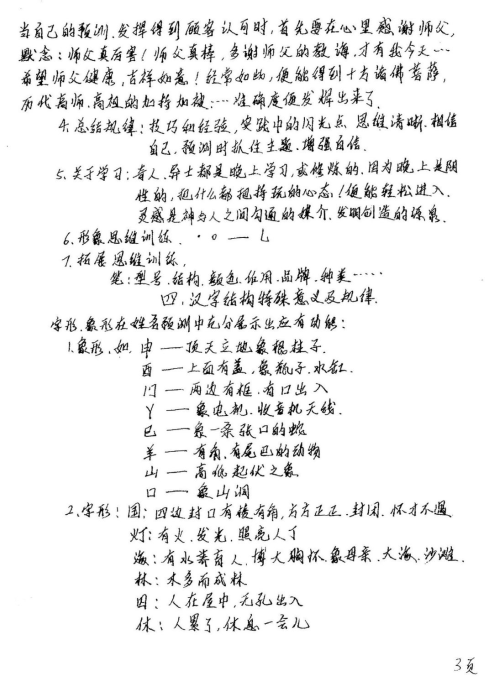 当自己的预测.发挥得到顾客认可时,首先要在心里感谢师父,
默念:师父真厉害!师父真棒,多谢师父的教诲,才有我今天…
希望师父健康,吉祥如意!经常如此,便能得到十方诸佛菩萨,
历代高师.高级的加持加被…准确度便发挥出来了.
4.总结规律:技巧和经验,实践中的闪光点 思维清晰.相信
自己.预测时抓住主题.增强自信.
5.关于学习:奇人.异士都是晚上学习,或修炼的.因为晚上是阴
性的,把什么都抱持玩的心态!便能轻松进入.
灵感是神与人之间勾通的媒介.发明创造的源泉.
6.形象思维训练. · ○ — 乚
7.拓展思维训练.
笔:型号.结构.颜色.作用.品牌.种类……
四,汉字结构特殊意义及规律.
字形.象形在姓名预测中充分展示出应有功能:
1.象形.如.申—顶天立地象根柱子.
酉—上面有盖,象瓶子.水缸.
门—两边有框.有口出入
丫—象电机.收音机天线.
巳—象一条张口的蛇
羊—有角.有尾巴的动物
山—高低起伏之象
口—象山洞
2.字形:国:四边封口有棱有角,方方正正.封闭.怀才不遇
灯:有火.发光.照亮人丁
海:有水养育人.博大胸怀.象母亲.大海.沙滩.
林:木多而成林
囚:人在屋中,无孔出入
休:人累了,休息一会儿
3页